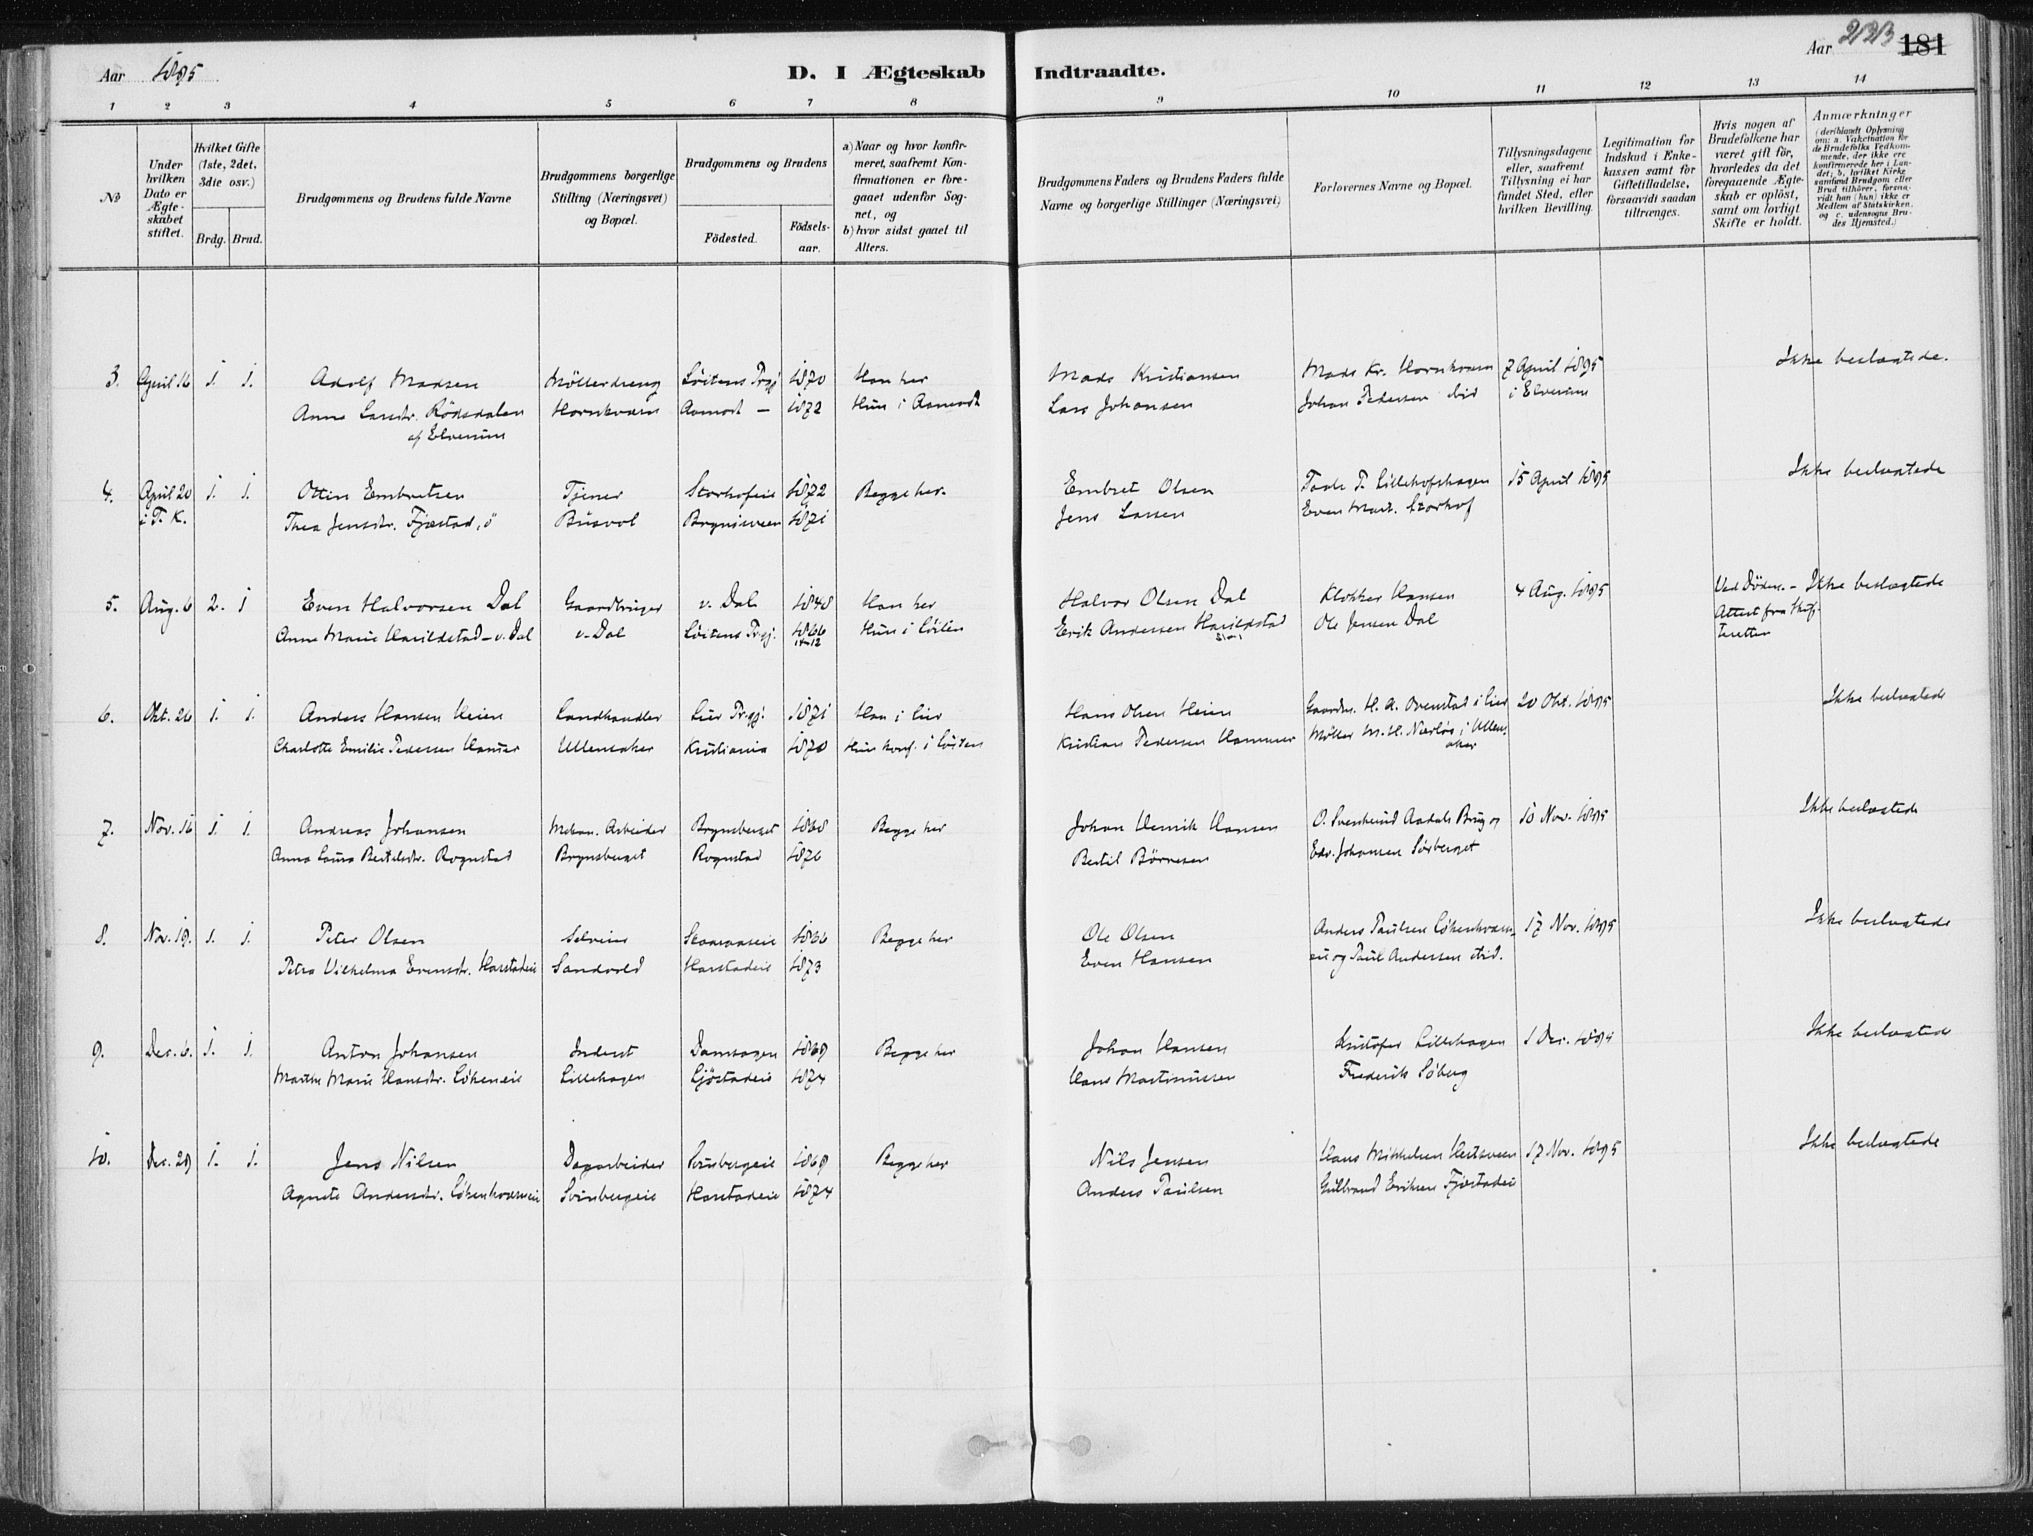 Aar 1895 D. I Ægteskab Indtraadte. Aar 223 181
1 2 3 4 5 6 7 8 9 10 11 12 13 14
№
Under hvilken Dato er Ægteskabet stiftet.
Hvilket Gifte (1ste, 2det, 3die osv.)
Brdg. Brud.
Brudgommens og Brudens fulde Navne
Brudgommens borgerlige Stilling (Næringsvei) og Bopæl.
Brudgommens og Brudens
Födested. Födsels-aar.
a) Naar og hvor konfirmeret, saafremt Konfirmationen er foregaaet udenfor Sognet, og
b) hvor sidst gaaet til Alters.
Brudgommens Faders og Brudens Faders fulde Navne og borgerlige Stillinger (Næringsvei)
Forlovernes Navne og Bopæl.
Tillysningsdagene eller, saafremt Tillysning ei har fundet Sted, efter hvilken Bevilling.
Legitimation for Indskud i Enkekassen samt for Giftetilladelse, forsaavidt saadan tiltrænges.
Hvis nogen af Brudefolkene har været gift för, hvorledes da det foregaaende Ægteskab er oplöst, samt om lovligt Skifte er holdt.
Anmærkninger (deriblandt Oplysning om: a. Vakcination for de Brudefolks Vedkommende, der ikke ere konfirmerede her i Landet; b. hvilket Kirkesamfund Brudgom eller Brud tilhörer, forsaavidt han (hun) ikke er Medlem af Statskirken, og c. udensogns Brudes Hjemsted.)
3. April 16 1. 1. Adolf Madsen Möllerdreng Löitens Prgj. 1870 Han her Mads Kristiansen Mads Kr. Hornkvæn 7 April 1895 Ikke beslægtede.
Anne Larsdr. Rödsdalen Hornkvæn Aamodt — 1872 Hun i Aamodt Lars Johansen Johan Pedersen ibid i Elverum
af Elverum
4. April 20 1. 1. Otten Embretsen Tjener Storhofeie 1872 Begge her. Embret Olsen T. Lillehofshagen 15 April 1895 Ikke beslægtede
i T. K. Thea Jensdr. Fjæstad Busvol 1871 Jens Larsen Even Mart. Storhof
5. Aug. 6 2. 1 Even Halvorsen Dal Gaardbruger v. Dal 1840 Han her Halvor Olsen Dal Klokker Hansen 4 Aug. 1895 Ved Döden. — Ikke beslægtede
Anne Marie Harildstad — v. Dal v. Dal Löitens Prgj. 1866 Hun i Löiten Erik Andersen Harildstad Ole Jensen Dal Attest fra Skifteretten
14-12
6. Okt. 26 1. 1. Anders Hansen Heien Landhandler Lier Prgj. 1871 Han i Lier Hans Olsen Heien Gaardbr. H. A. Ovenstad i Lier 20 Okt. 1895 Ikke beslægtede
Charlotte Emilie Pedersen Hamer Ullensaker Kristiania 1870 Hun konf. i Löiten Kristian Pedersen Hammer Möller M. H. i Ullensaker
7. Nov. 16 1. 1. Andreas Johansen Mekan. Arbeider Brynsberget 1868 Begge her Johan Henrik Hansen O. Svenkerud Aadals Brug og 10 Nov. 1895 Ikke beslægtede
Anna Laura Bertelsdr. Rognstad Brynsberget Rognstad 1876 Bertil Börresen Edv. Johansen Sörberget
8. Nov. 19. 1. 1. Peter Olsen Selveier 1866 Begge her Ole Olsen Anders Paulsen Lökenkværn- 17 Nov. 1895 Ikke beslægtede
Petra Vilhelma Evensdr. Harstadeie Sandvold Harstadeie 1873 Even Hansen ei og Paul Andersen ibid.
9. Dec. 6. 1. 1. Anton Johansen Inderst Damhagen 1869 Begge her Johan Hansen Kristofer Lillehagen 1 Dec. 1894 Ikke beslægtede
Marthe Marie Hansdr. Lökeneie Lillehagen Gjöstadeie 1874 Hans Martinussen Frederik Söberg
10. Dec. 29 1. 1. Jens Nilsen Dagarbeider Svinbergeie 1869 Begge her Nils Jensen Hans Mikkelsen 17 Nov. 1895 Ikke beslægtede
Agnete Andersdr. Lökenkværneie Svinbergeie Harstadeie 1874 Anders Paulsen Gulbrand Eriksen Fjæstadei